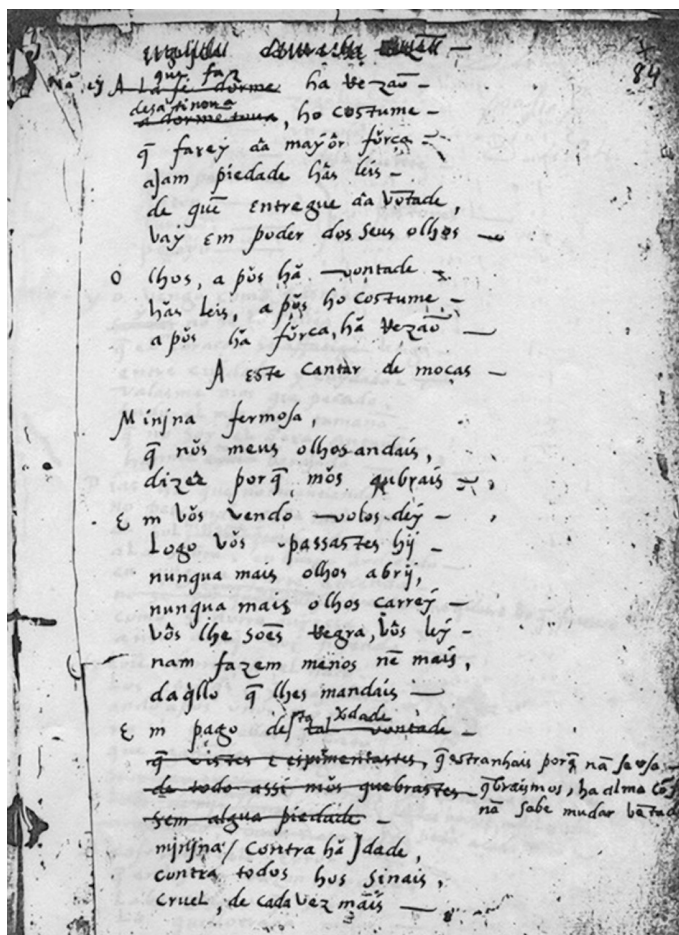 84
que faz
A la fe dorme ha rezaõ –
desatinona
a dorme nona, ho costume –
q̃ farey da mayõr fŭrça –
aJam piedade hãs leis –
de quẽ entregue da võtade,
vay em poder dos seus olhos –
O lhos, a põs hã vontade –
hãs leis, a põs ho costume –
a põs hã fŭrca, hã rezaõ –
A este cantar de moças –
Minina fermosa,
q̃ nõs meus olhos andais,
dizer porq̃ mõs qubrais –
E m võs vendo volos dey –
Logo võs passastes hij –
nungua mais olhos abrij,
nungua mais olhos carrey –
võs lhe soẽs regra, võs ley –
nam fazem menos nẽ mais,
daqllo q̃ lhes mandais –
E m pago desta tal vontade –
q̃ vistes e espimentastes, q̃ estranhais porq̃ nã se vsa –
de todo assi mõs quebrastes – q̃braijmos, ha alma
sem algua piedade – nã sabe mudar
minina / contra hã Jdade,
contra todos hos sinais,
cruel, de cada vez mais –